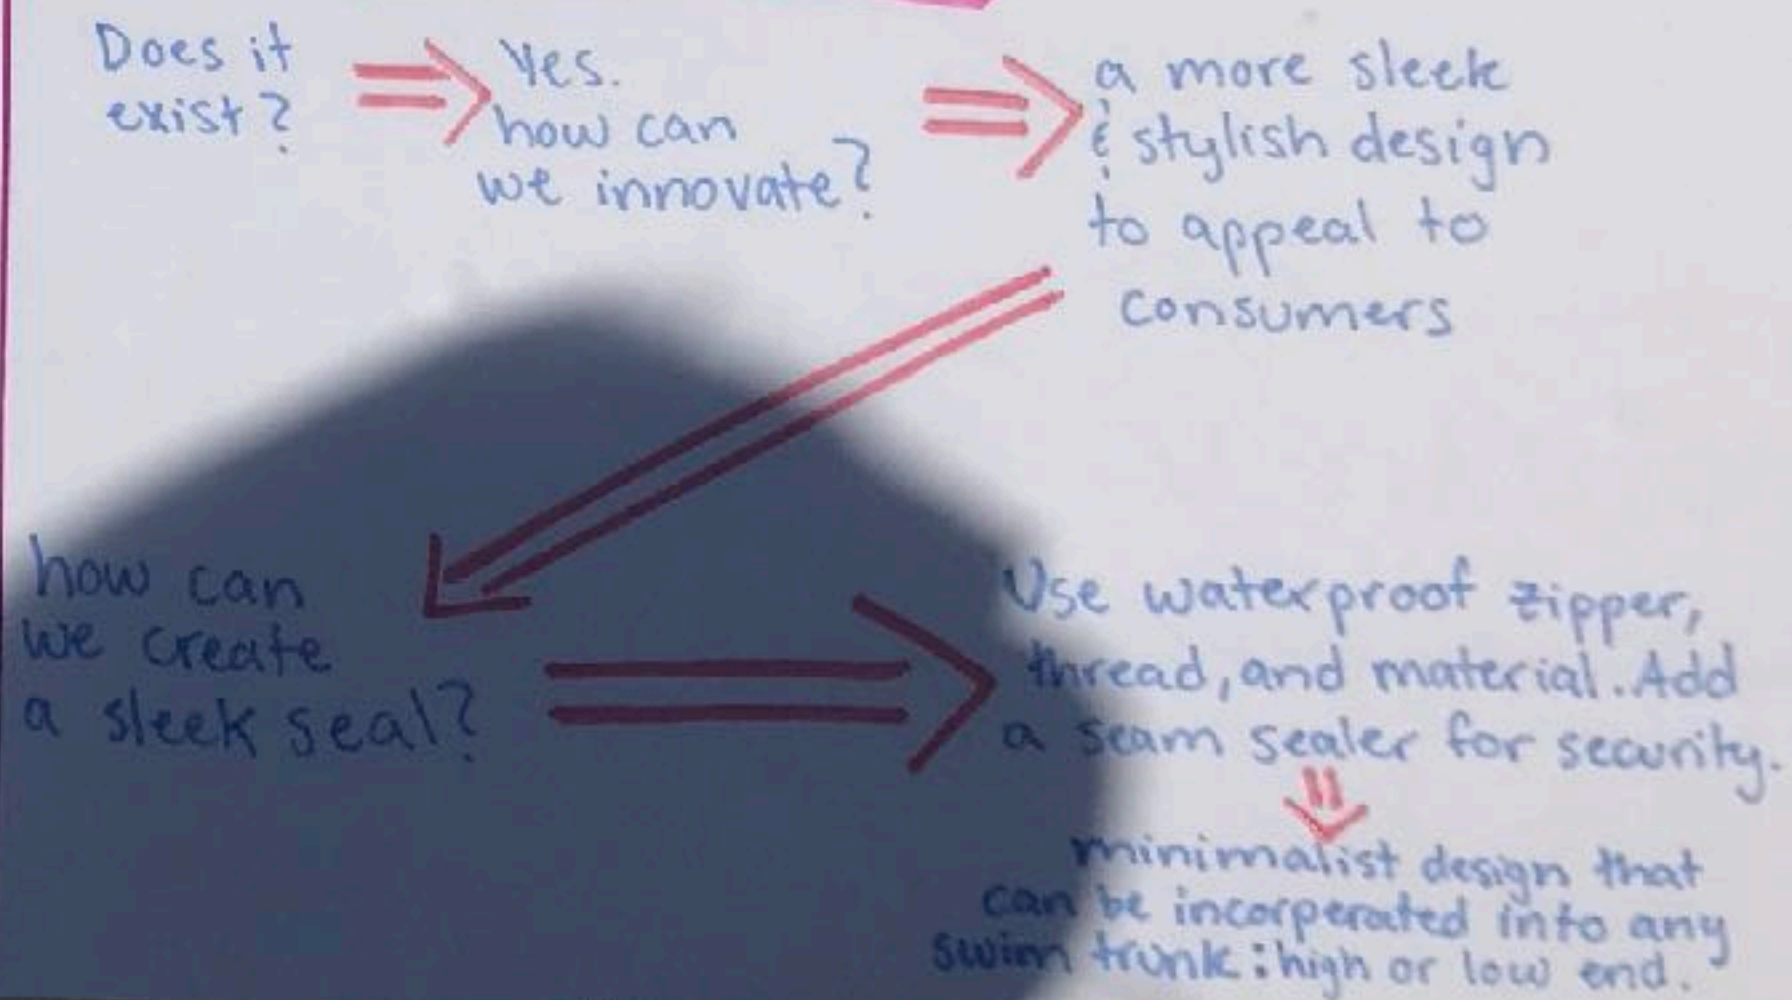 Does it
exist?
Yes.
how can
we innovate?
a more sleek
& stylish design
to appeal to
consumers
how can
we create
a sleek seal?
Use waterproof zipper,
thread, and material. Add
a seam sealer for security.
minimalist design that
can be incorperated into any
swim trunk: high or low end.